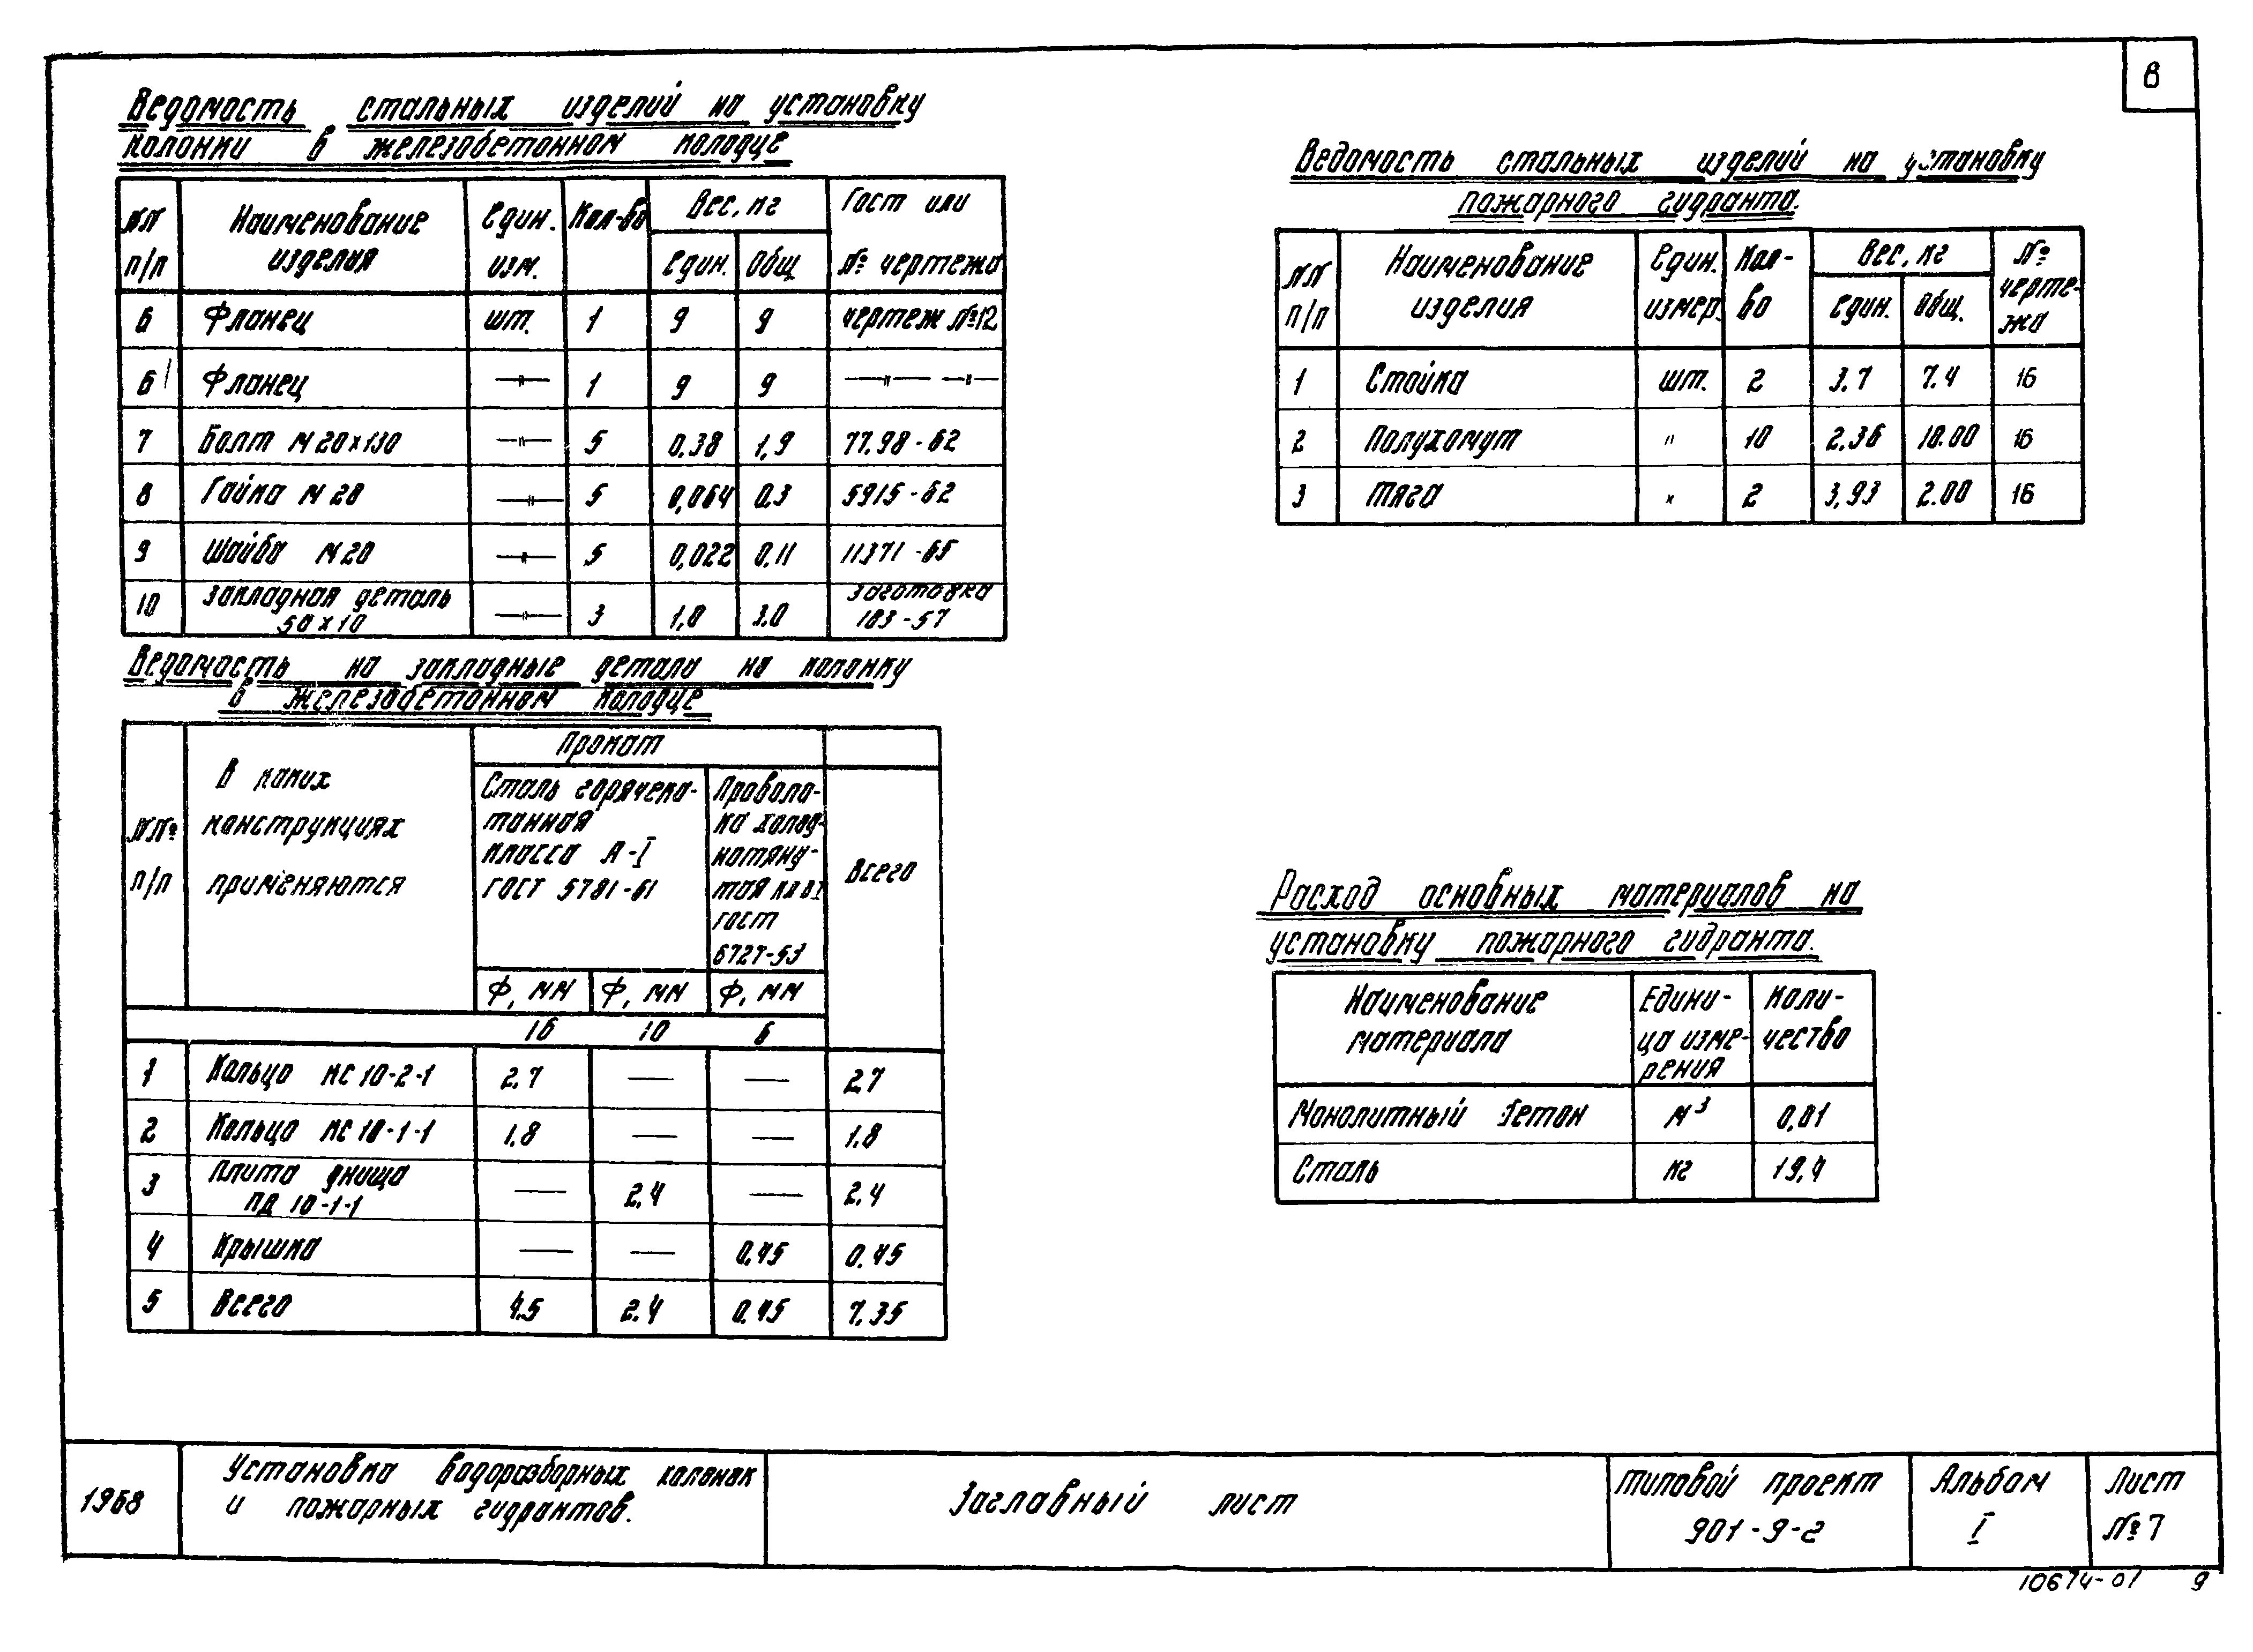 8
Ведомость стальных изделий на установку
колонки в железобетонном колодце
№№ п/п Наименование изделия Един. изм. Кол-во Вес, кг един. Общ Гост или № чертежа
6 Фланец шт. 1 9 9 чертеж №12
6' Фланец —"— 1 9 9 —"— —"—
7 Болт М20х130 —"— 5 0.38 1,9 7798-62
8 Гайка М20 —"— 5 0,064 0.3 5915-62
9 Шайба М20 —"— 5 0,022 0.11 11371-65
10 Закладная деталь 50х10 —"— 3 1,0 3.0 заготовка 103-57
Ведомость на закладные детали на колонку
в железобетонном колодце
№№ п/п В каких конструкциях применяются Прокат Всего
Сталь горячека-
танная
класса А-I
ГОСТ 5781-61
Проволо-
ка холод-
нотяну-
тая кл ВI
гост
6727-53
Ф, мм Ф, мм Ф, мм
16 10 6
1 Кольцо КС 10-2-1 2.7 — — 2.7
2 Кольцо КС 10-1-1 1.8 — — 1.8
3 Плита днища ПД 10-1-1 — 2.4 — 2.4
4 Крышка — — 0.45 0.45
5 Всего 4.5 2.4 0.45 7.35
Ведомость стальных изделий на установку
пожарного гидранта.
№№ п/п Наименование изделия Един. измер. Кол-во Вес, кг един. Общ. № черте-жа
1 Стойка шт. 2 3.7 7.4 16
2 Полухомут " 10 2.36 10.00 16
3 Тяга " 2 3,93 2.00 16
Расход основных материалов на
установку пожарного гидранта.
Наименование материала Едини-ца изме-рения Коли-чество
Монолитный бетон м³ 0,01
Сталь кг 19,4
1968
Установка водоразборных колонок
и пожарных гидрантов.
Заглавный лист
Типовой проект
901-9-2
Альбом
I
Лист
№7
10674-01 9